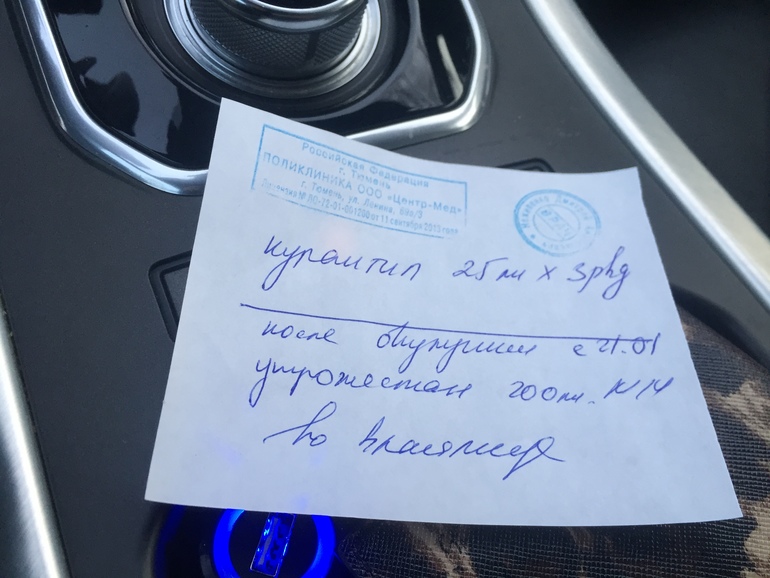 Российская Федерация
г. Тюмень
ПОЛИКЛИНИКА ООО «Центр-Мед»
г. Тюмень, ул. Ленина,
Лицензия № от 11 сентября 2015 года
Дмитрий
курантил 25 мг х 3р/д
после овуляции с 21.01
утрожестан 200 мг. N14
во влагалище